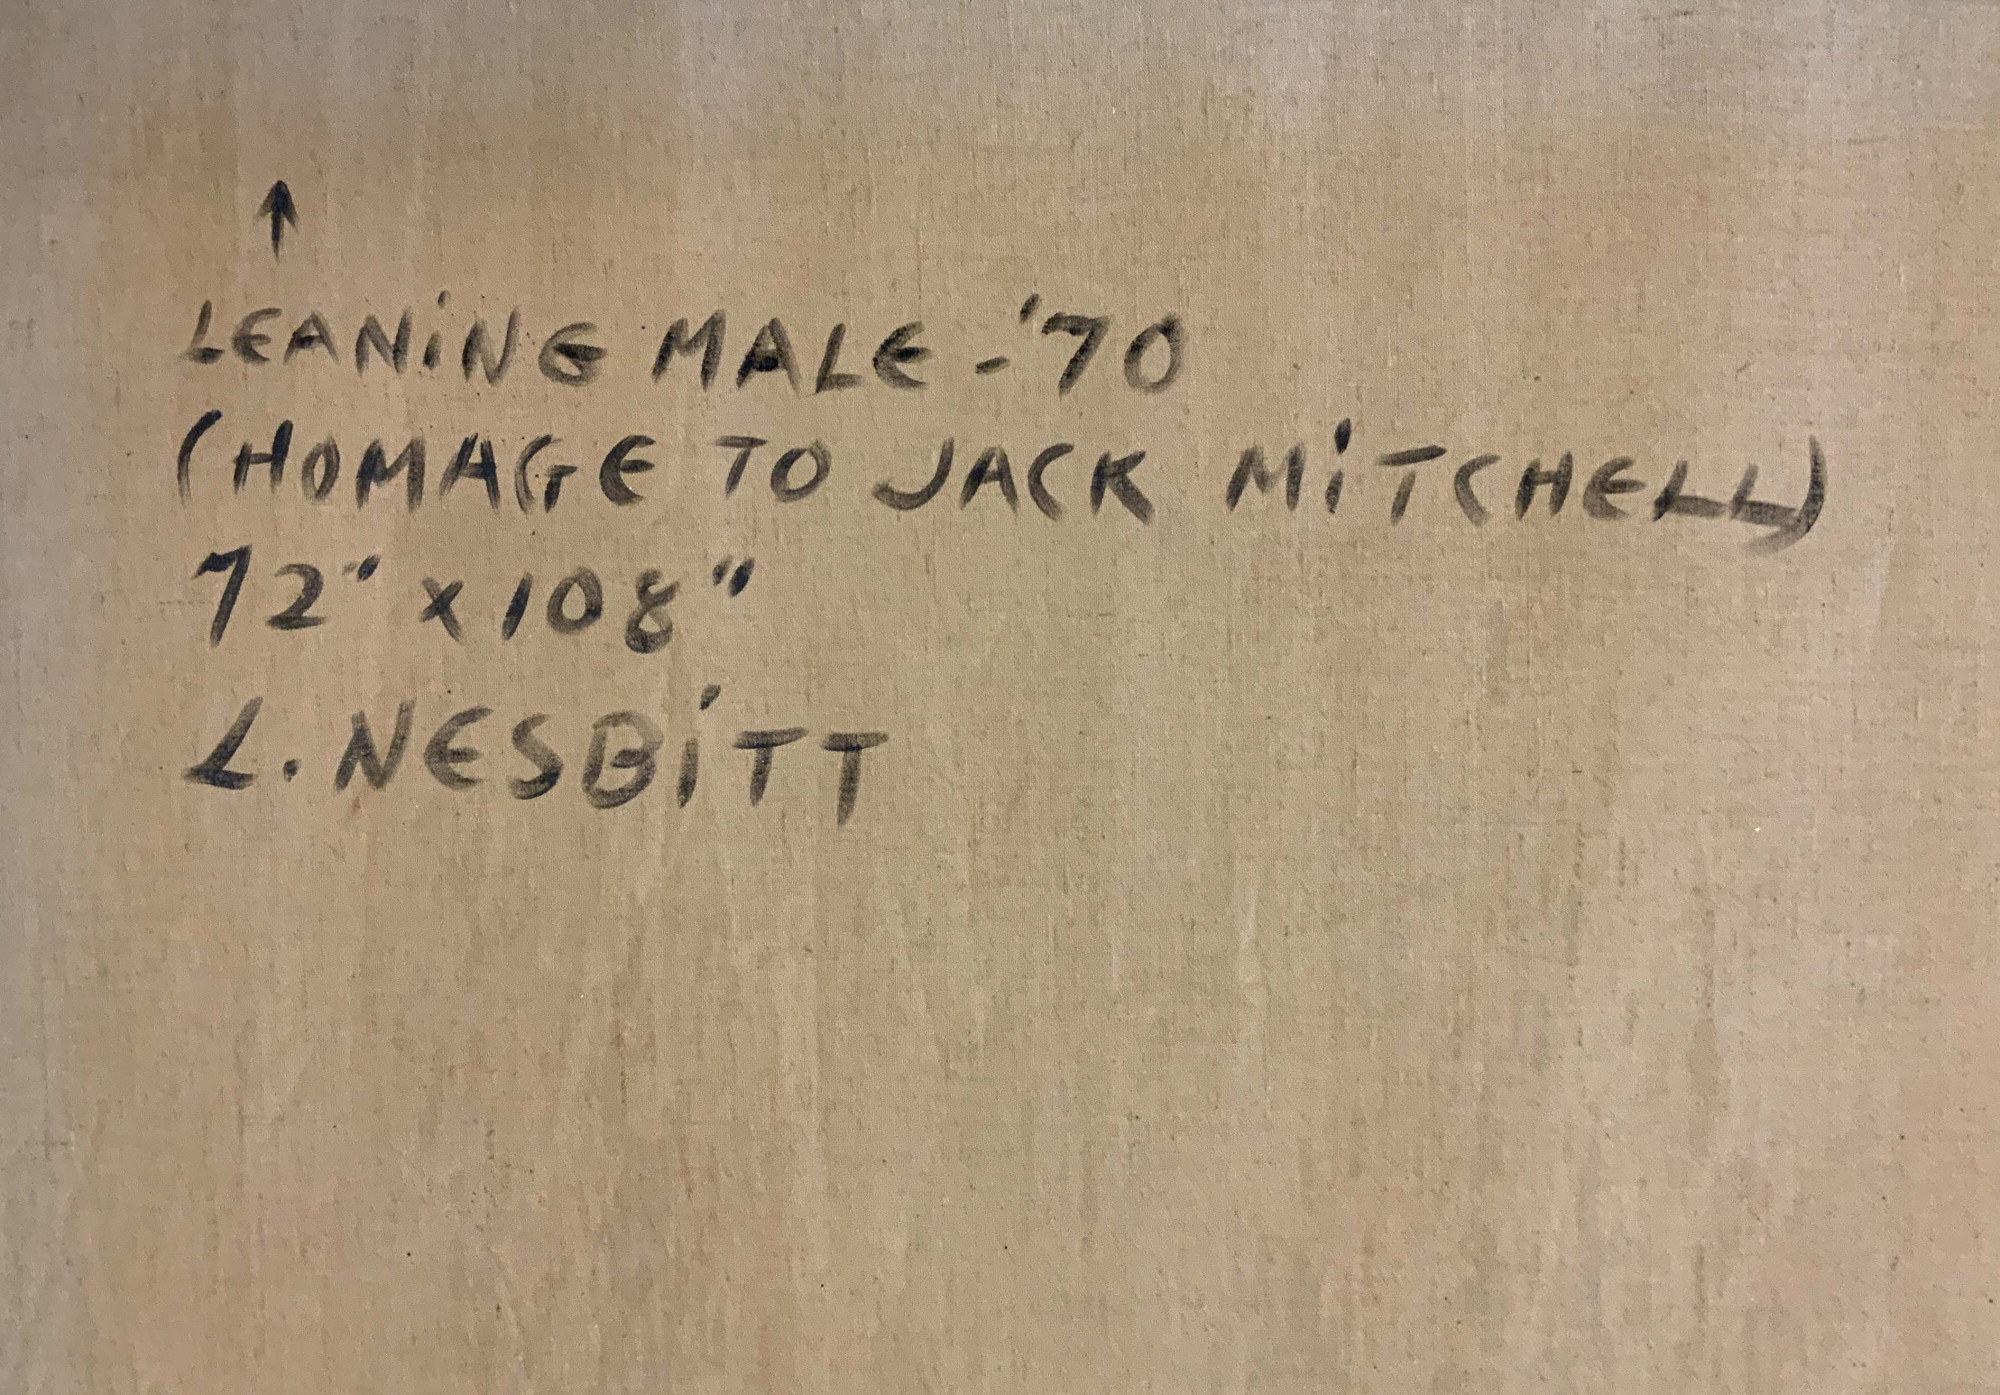 ↑
LEANiNG MALE - '70
(HOMAGE TO JACK MiTCHELL)
72" x 108"
L. NESBiTT